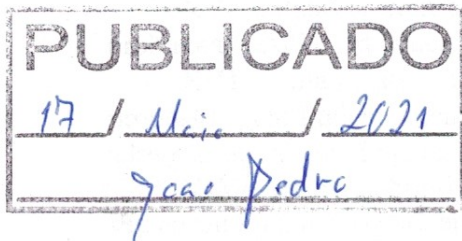 PUBLICADO
17 / Maio / 2021
Joao Pedro